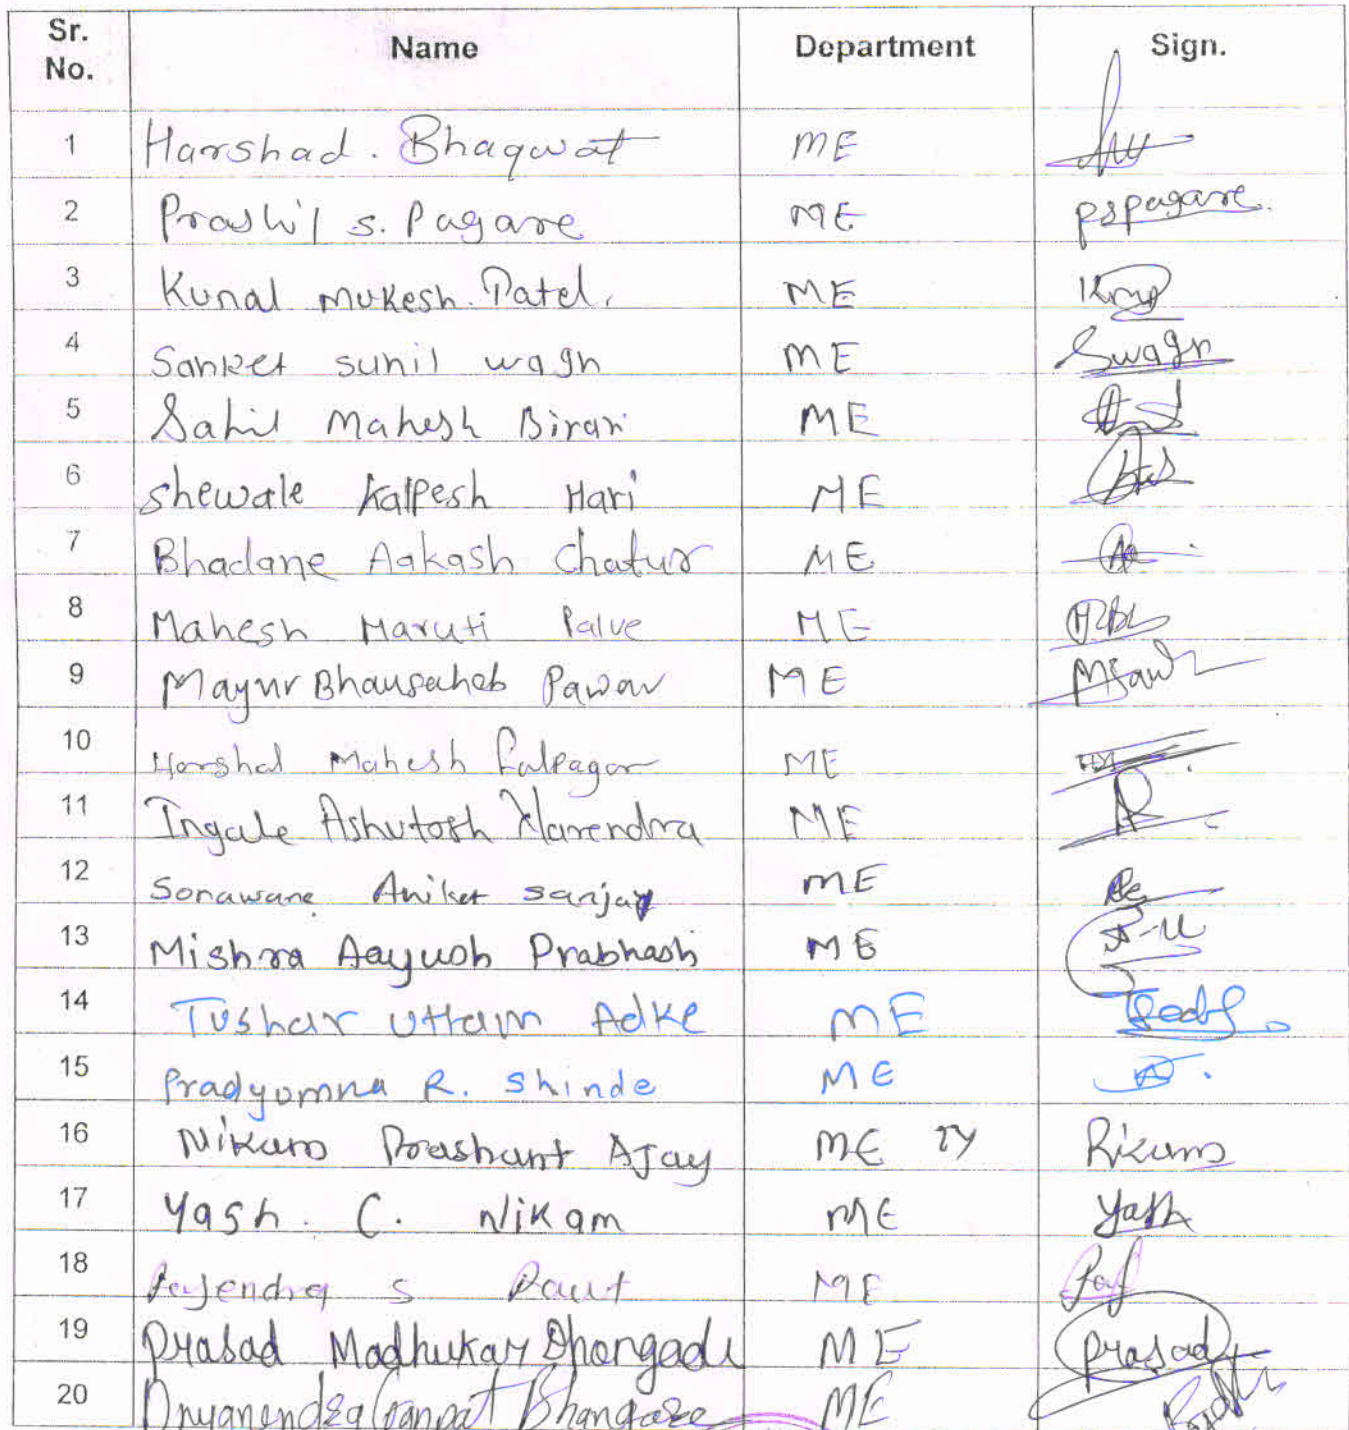 Sr. No. Name Department Sign.
1 Harshad. Bhagwat ME
2 Prashil s. Pagare ME pspagare.
3 Kunal Mukesh. Patel. ME Kmp
4 Sanket sunil wagh ME Swagh
5 Sahil Mahesh Birari ME
6 shewale Kalpesh Hari ME
7 Bhadane Aakash Chatur ME
8 Mahesh Maruti Palve ME
9 Mayur Bhausaheb Pawar ME
10 Harshal Mahesh ME
11 Ingale Ashutosh Narendra ME
12 Sonawane Aniket sanjay ME
13 Mishra Aayush Prabhash ME
14 Tushar Uttam Adke ME
15 Pradyumna R. Shinde ME
16 Nikam Prashant Ajay ME TY
17 Yash. C. Nikam ME Yash
18 Rajendra S Raut ME Raj
19 Prasad Madhukar Dhongade ME Prasad
20 Ganpat ME